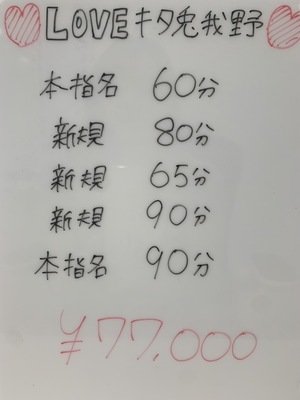 LOVEキタ兎我野
本指名 60分
新規 80分
新規 65分
新規 90分
本指名 90分
¥77,000